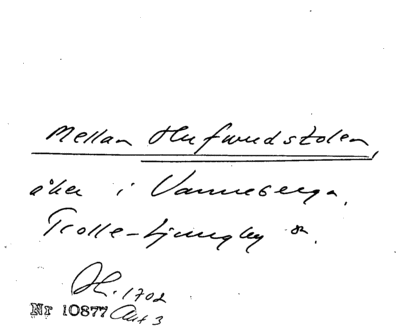 Mellan Hufwudstolen,
åker i Vanneberga,
Trolle-Ljungby sn.
H. 1702
Nr 10877 Akt 3